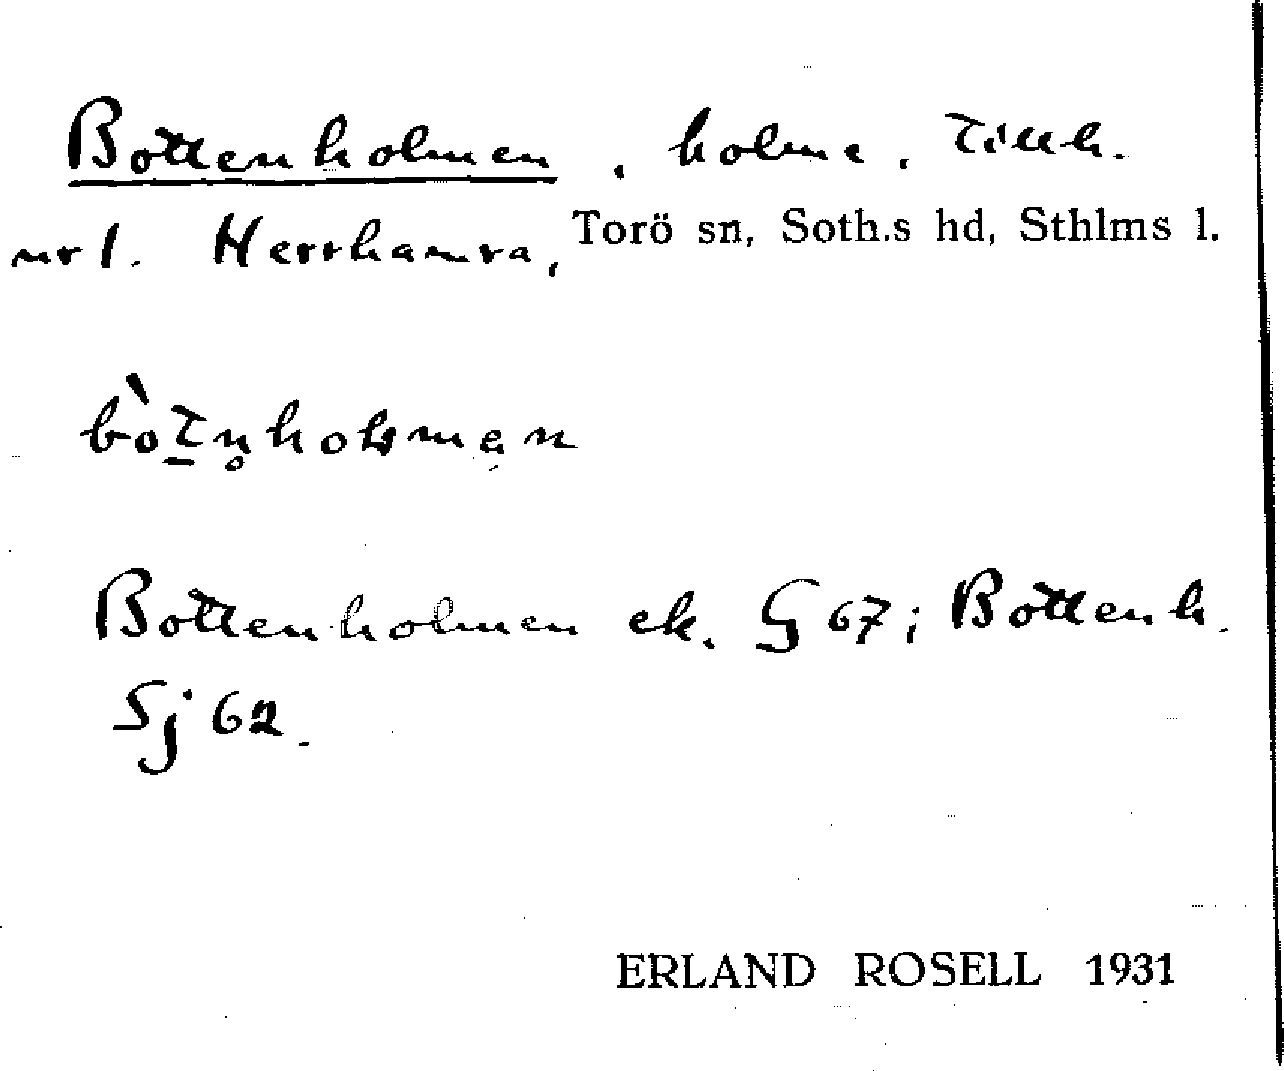 Bottenholmen, holme, Tillh.
nr 1. Herrhamra, Torö sn, Soth.s hd, Sthlms l.
bòt̲n̥holmən
Bottenholmen ek. G 67; Bottenh.
Sj 62.
ERLAND ROSELL 1931